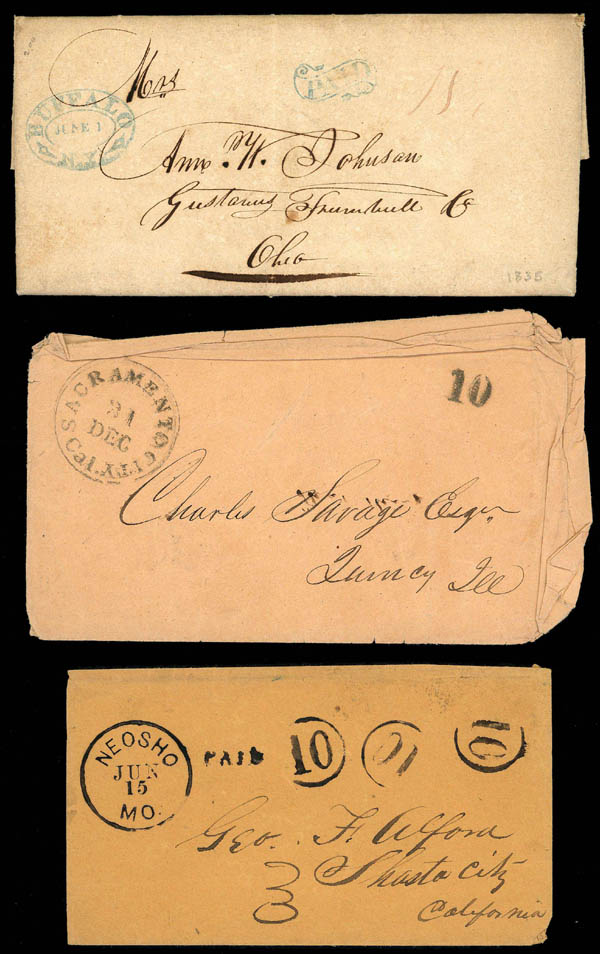 BUFFALO
JUNE 1
N.Y.
PAID
Mrs
Ann. W. Johnson
Gustavus Trumbull Co
Ohio
1835
SACRAMENTO CITY Cal.
31
DEC
10
Charles Savage Esqr
Quincy Ill
NEOSHO
JUN
15
MO.
PAID
10
10
10
Geo. F. Alford
Shasta City
California
3